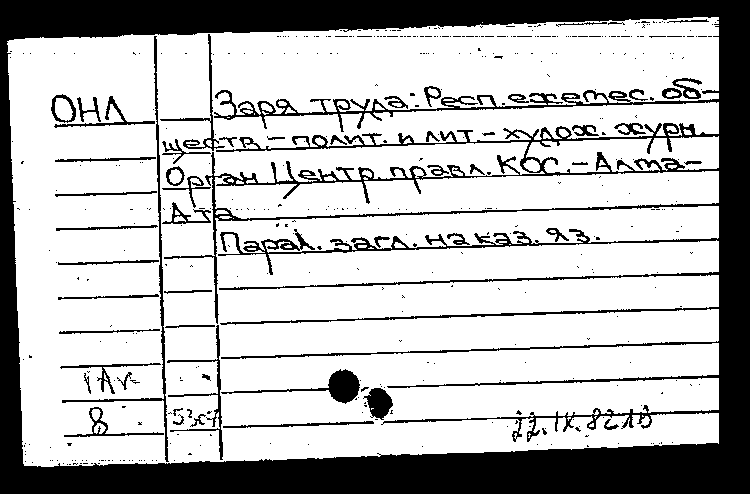 ОНЛ Заря труда: Респ. ежемес. об-
ществ.-полит. и лит.-худож. журн.
Орган Центр. правл. КОС. - Алма-
Ата
Парал. загл. на каз. яз.
8
22.IX.82